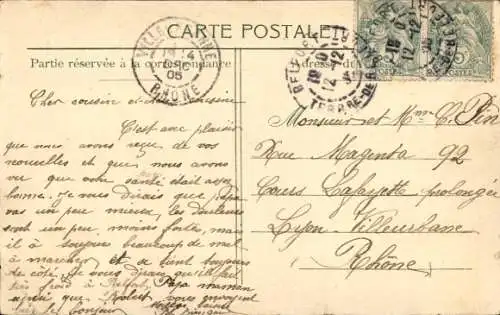 CARTE POSTALE
Partie réservée à la correspondance
Adresse du
VILLEURBANNE
05
RHONE
BELFORT
12-12
TERRRE-DE-BELFORT
Cher cousin et cousine
C'est avec plaisir
que nous avons reçu de vos
nouvelles et que nous avons
vu que votre santé était assez
bonne. Je vous dirais que Papa
vas un peu mieux, les douleurs
sont un peu moins forte, mais
il à toujours beaucoup de mal
à marcher et a tient toujours
de côté. Je vous dirai qu'il fait
très froid à Belfort. Papa maman
ainsi que Robert vous envoyent
bien le bonjour
Monsieur et Mme C. Pin
Rue Magenta 92
Cours Lafayette prolongé
Lyon-Villeurbane
Rhône